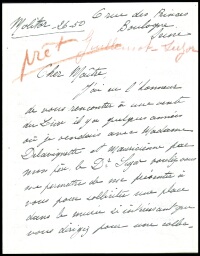 Molitor 26.50 6 rue des Princes
Boulogne
Seine
prêt
Cher Maître
J'ai eu l'honneur
de vous rencontrer à une vente
de Luxe il y a quelques années
où je vendais avec Madame
Delavignette et
mon feu le Dr
me permettre de me présente à
vous pour solliciter une place
dans le musée si intéressant que
vous dirigez pour une